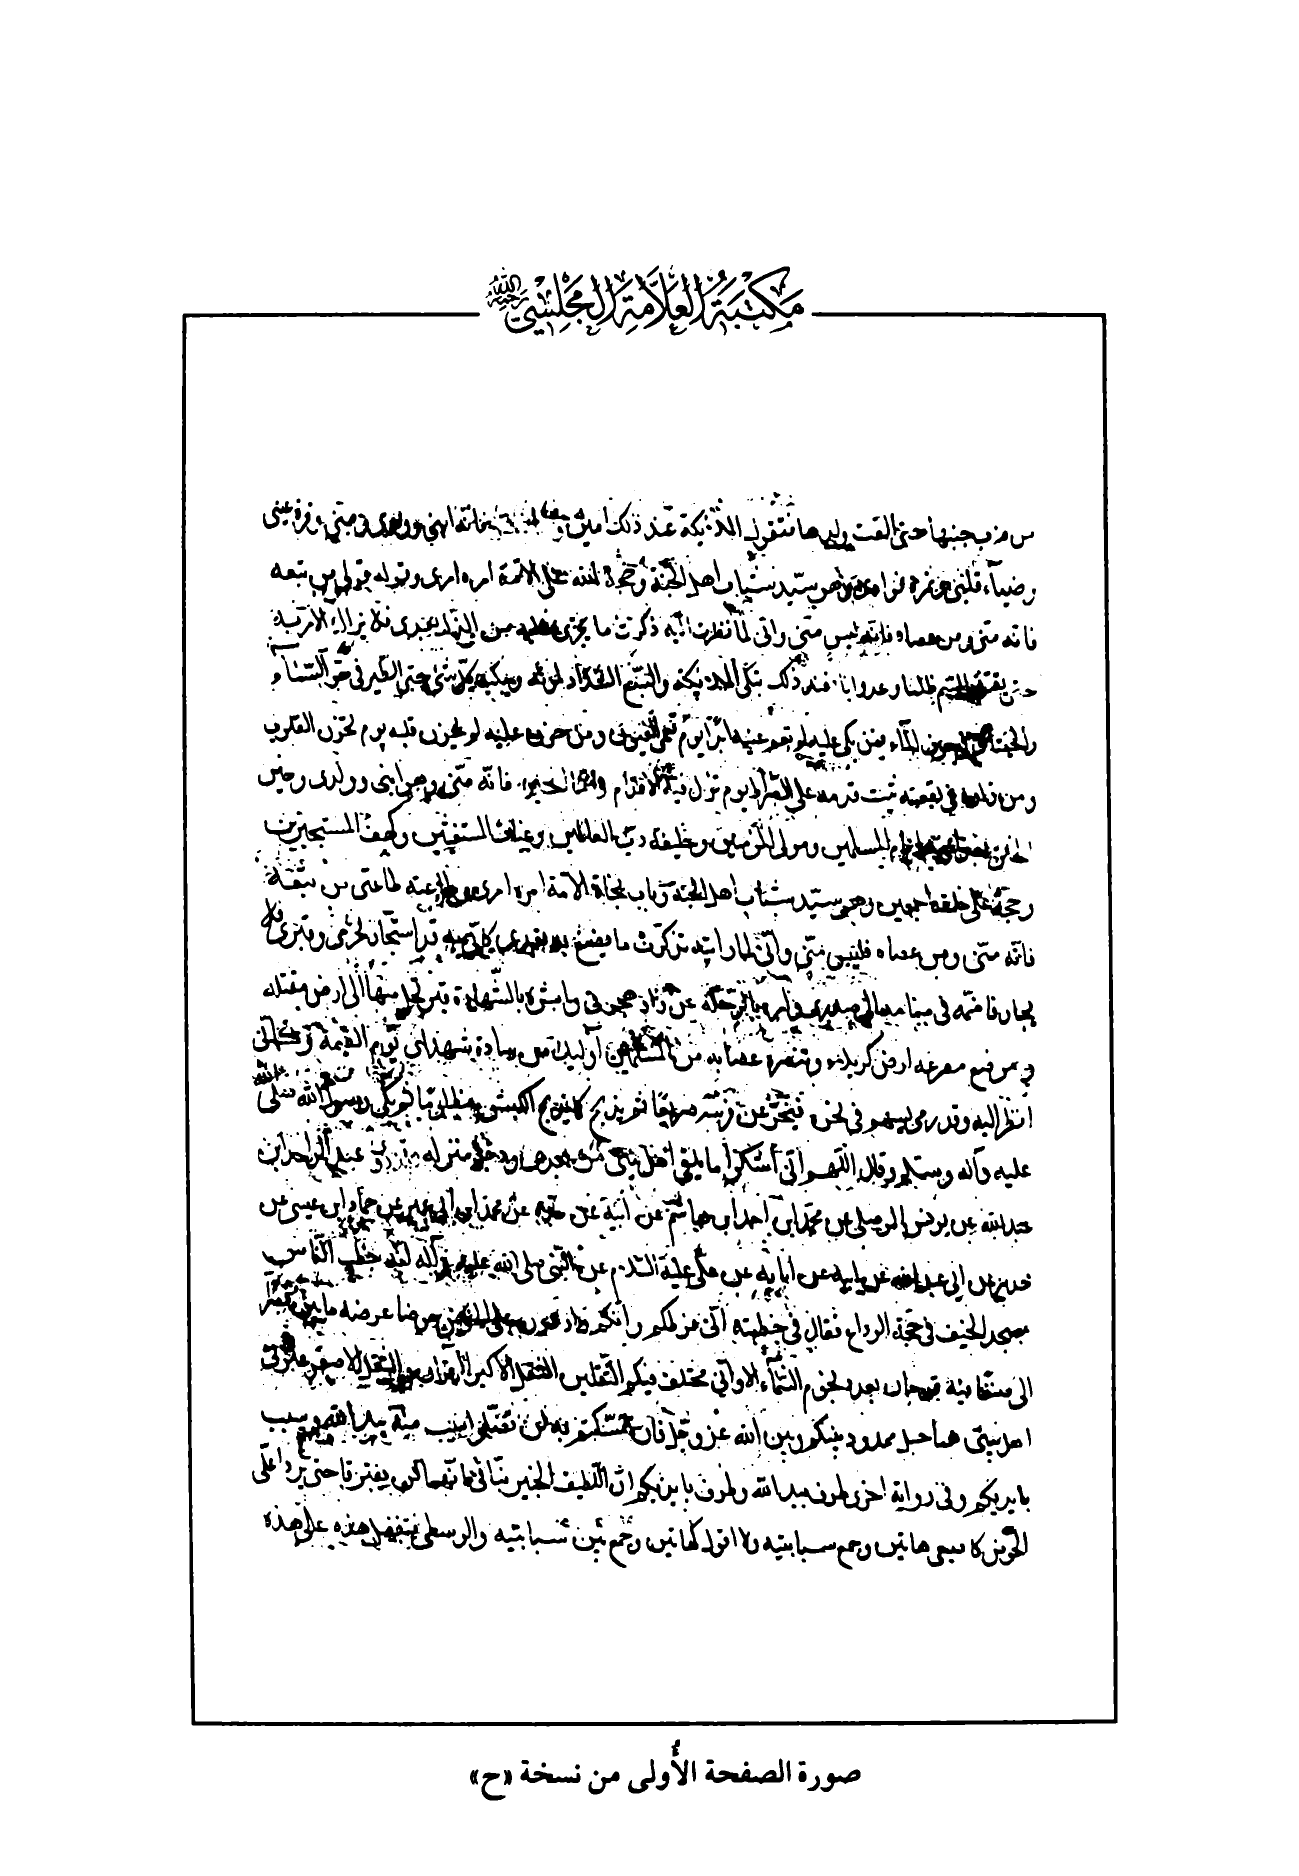 مكتبة العلامة المجلسي رحمه الله
من جنبها حتى القت ولدها فتقول الملائكة عند ذلك امين ابني وولدي ومني وقرة عيني
وضياء قلبي وثمرة فؤادي وهو سيد شباب اهل الجنة وحجة الله على الامة امره امري وقوله قولي من تبعه
فانه مني ومن عصاه فانه ليس مني واني لما نظرت اليه ذكرت ما يجري عليه من بعدي فلا يزال الامر به
حتى يقتل ظلما وعدوانا فعند ذلك تبكي الملائكة والسبع الشداد لموته ويبكيه كل شيء حتى الطير في جو السماء
والحيتان في الماء فمن بكى عليه لم تعم عينه يوم تعمى العيون ومن حزن عليه لم يحزن قلبه يوم تحزن القلوب
ومن زاره في بقعته ثبت قدمه على الصراط يوم تزل فيه الاقدام واما الحسين فانه مني وهو ابني وولدي وخير
المسلمين ومولى المؤمنين وخليفة رب العالمين وغياث المستغيثين وكهف المستجيرين
وحجة على خلقه اجمعين وهو سيد شباب اهل الجنة وباب نجاة الامة امره امري طاعته طاعتي من تبعه
فانه مني ومن عصاه فليس مني واني لما رايته تذكرت ما يصنع به بعدي كاني به قد استجار بحرمي وقبري فلا
يجار فاضمه في منامه الى صدري وآمره بالرحلة عن دار هجرتي وابشره بالشهادة فيرتحل منها الى ارض مقتله
وموضع مصرعه ارض كربلاء وتنصره عصابة من المسلمين اولئك من سادة شهداء يوم القيمة وكاني
انظر اليه وقد رمي بسهم في نحره فيخر عن فرسه صريعا ثم يذبح كما يذبح الكبش مظلوما ثم بكى رسول الله صلى الله
عليه وآله وسلم وقال اللهم اني اشكو اليك ما يلقى اهل بيتي من بعدي ودخل منزله عبد الواحد ابن
عبد الله بن يونس الموصلي عن محمد ابن احمد ابن هاشم عن ابيه عن محمد ابن ابي عمير عن حماد ابن عيسى عن
حريز عن ابي عبد الله عن ابيه عن ابائه عن علي عليه السلام عن النبي صلى الله عليه وآله خطب الناس
بمسجد الخيف في حجة الوداع فقال في خطبته اني فرطكم وانكم واردون علي الحوض حوضا عرضه ما بين بصرى
الى صنعا فيه قدحان بعدد نجوم السماء الا واني مخلف فيكم الثقلين الثقل الاكبر القران والثقل الاصغر عترتي
اهل بيتي هما حبل ممدود بينكم وبين الله عز وجل فان تمسكتم به لن تضلوا سبب منه بيد الله وسبب
بايديكم وفي رواية اخرى طرف بيد الله وطرف بايديكم ان اللطيف الخبير نبأني انهما لن يفترقا حتى يردا علي
الحوض كاصبعي هاتين وجمع سبابتيه ولا اقول كهاتين وجمع بين سبابتيه والوسطى فتفضل هذه على هذه
صورة الصفحة الأولى من نسخة «ح»